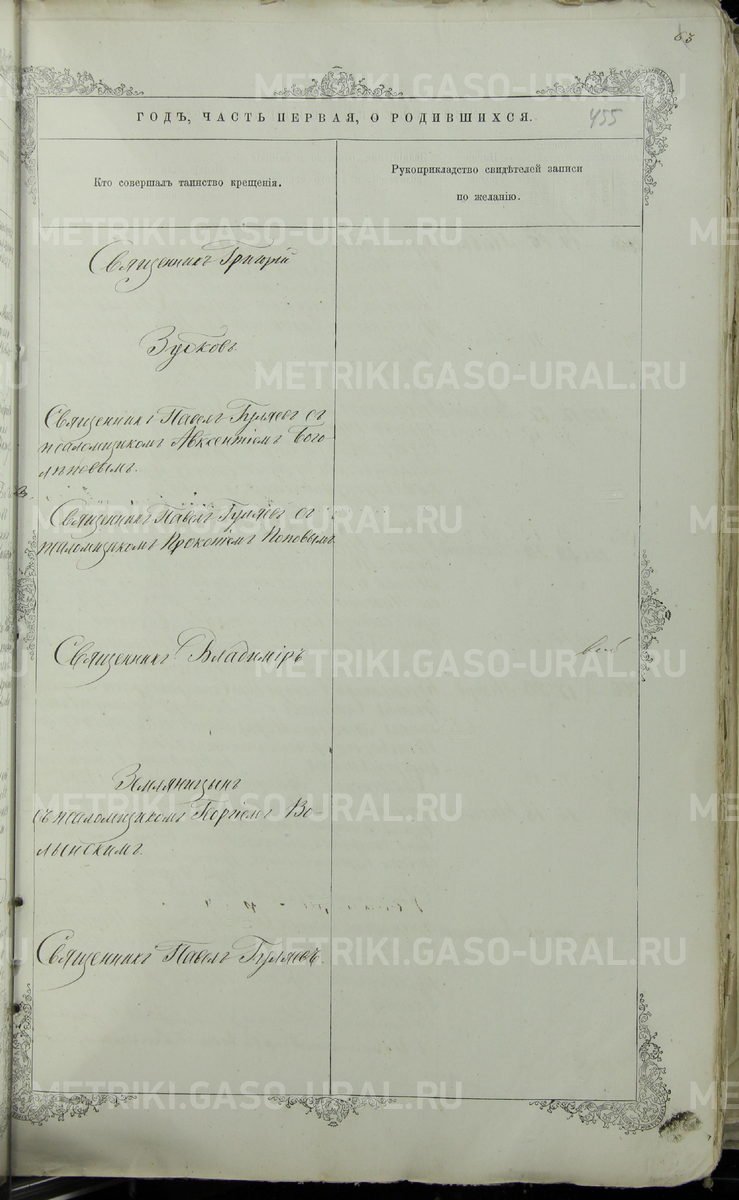 63
455
METRIKI.GASO-URAL.RU
ГОДЪ, ЧАСТЬ ПЕРВАЯ, О РОДИВШИХСЯ.
Кто совершалъ таинство крещенія.
Рукоприкладство свидѣтелей записи
по желанію.
Священникъ Григорій
Зубковъ.
Священникъ Павелъ Гуляевъ съ
псаломщикомъ Авксентіемъ Бого
лѣповымъ.
Священникъ Павелъ Гуляевъ съ
псаломщикомъ Прокопіемъ Поповымъ.
Священникъ Владиміръ
Земляницынъ
съ псаломщикомъ Во-
лынскимъ.
Священникъ Павелъ Гуляевъ.